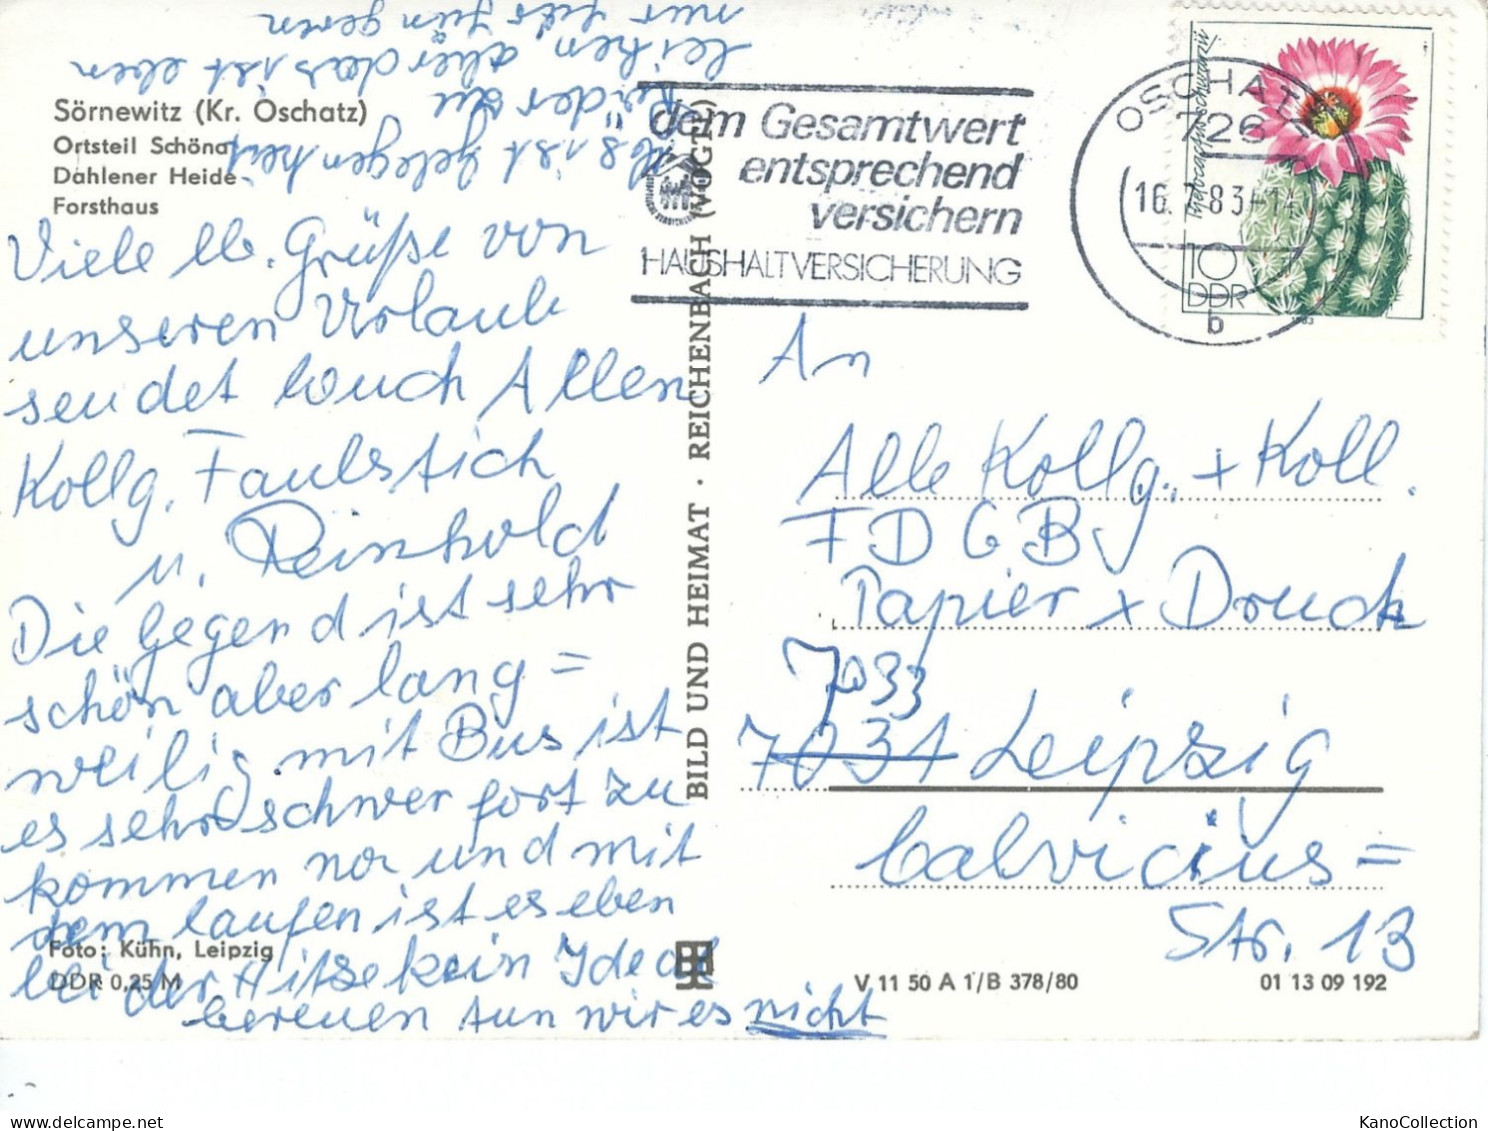 Sörnewitz (Kr. Oschatz)
Ortsteil Schöna
Dahlener Heide
Forsthaus
Viele lb. Grüße von
unseren Urlaub
sendet Euch Allen
Kollg. Faulstich
u. Reinhold
Die Gegend ist sehr
schön aber lang=
weilig mit Bus ist
es sehr schwer fort zu
kommen nor und mit
dem laufen ist es eben
bei der Hitze kein Ideal
bereuen tun wir es nicht
ist gelegenheit
Räder zu
leihen, aber das ist eben
nur für jüngeren
Foto: Kühn, Leipzig
DDR 0,25 M
BILD UND HEIMAT · REICHENBACH (VOGTL)
dem Gesamtwert
entsprechend
versichern
HAUSHALTVERSICHERUNG
OSCHATZ
726
16.7.83-14
b
Thelocactus schwarzii
10
DDR
1983
An
Alle Kollg. + Koll.
FDGB
Papier + Druck
7033
7031 Leipzig
Calvicius=
Str. 13
V 11 50 A 1/B 378/80
01 13 09 192
KanoCollection